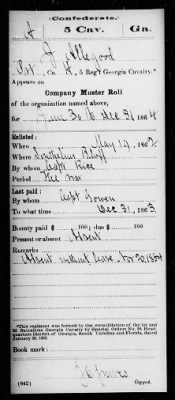 Confederate.
A 5 Cav. Ga.
J Allegood
Pvt, Co. A, 5 Reg't Georgia Cavalry.*
Appears on
Company Muster Roll
of the organization named above,
for June 30 to Dec 31, 1864
Enlisted:
When May 12, 1862
Where Bluff
By whom Capt
Period the war
Last paid:
By whom Capt Bowen
To what time Dec 31, 1863.
Bounty paid $ 100; due $ 100
Present or absent Absent
Remarks:
Absent without leave Nov 20 1864
*This regiment was formed by the consolidation of the 1st and
2d Battalions Georgia Cavalry by Special Orders No. Head-
quarters District of Georgia, South Carolina and Florida, dated
January 20, 1863.
Book mark:
(642) Copyist.